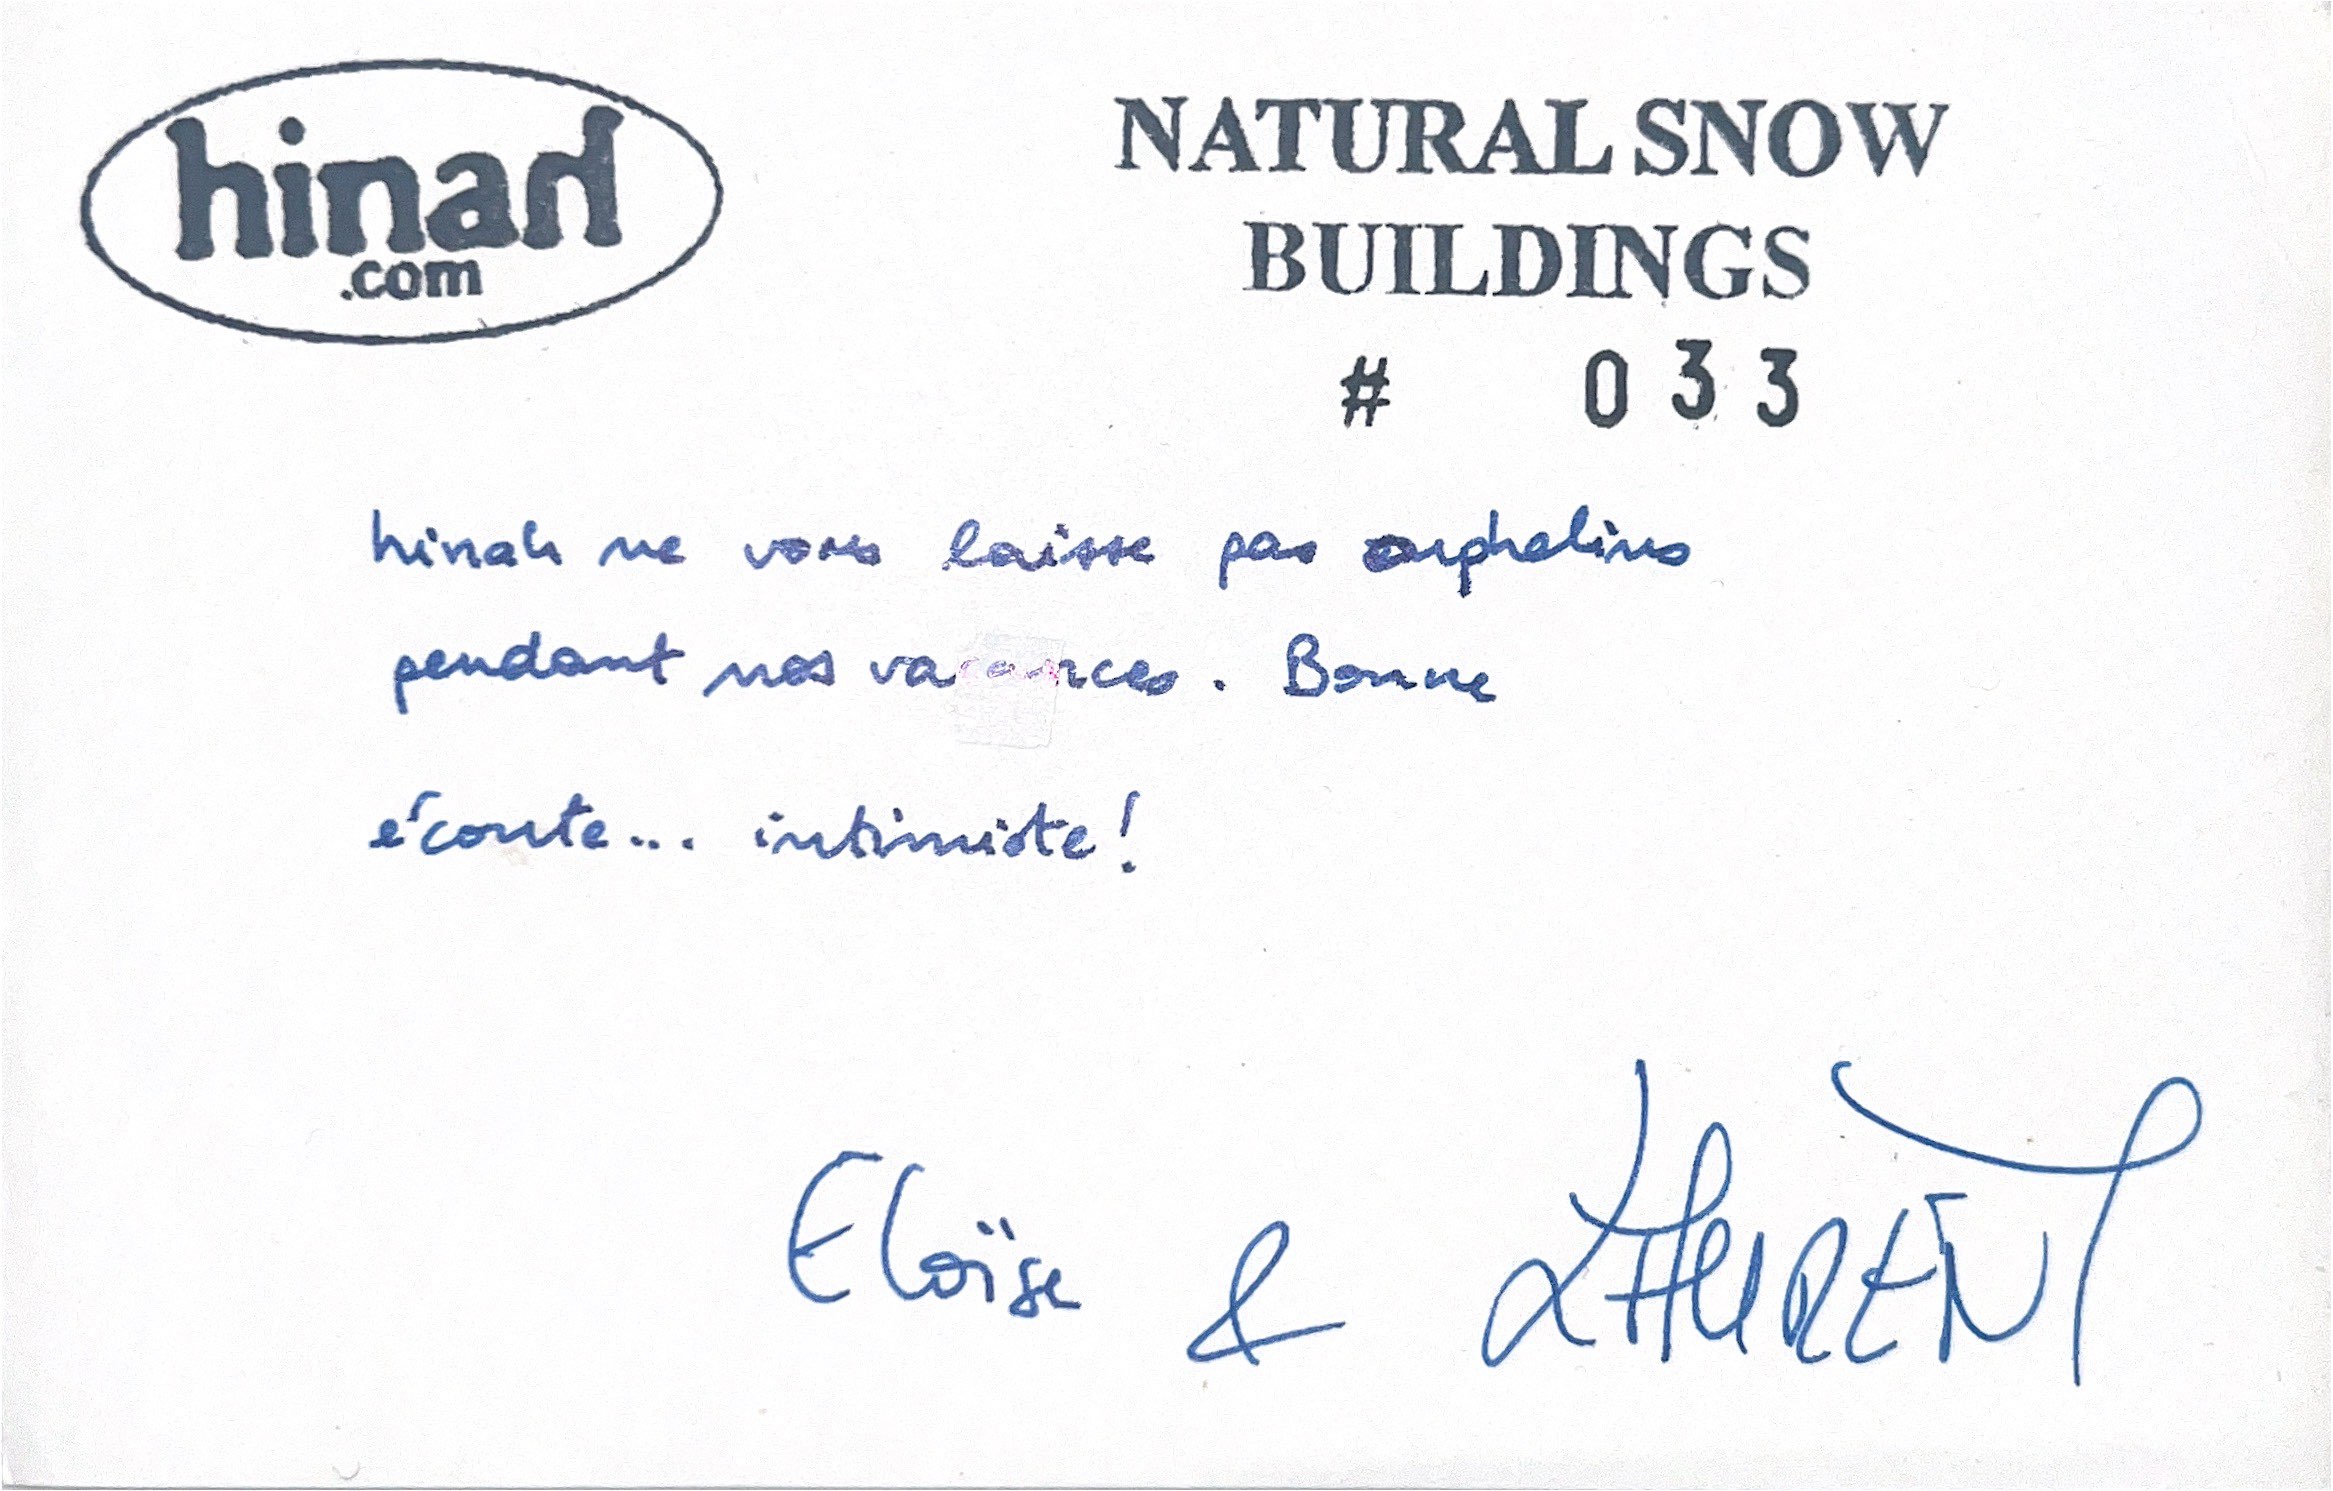 hinah
.com
NATURAL SNOW
BUILDINGS
# 033
hinah ne vous laisse pas orphelins
pendant nos vacances. Bonne
écoute... intimiste!
Eloïse & LAURENT